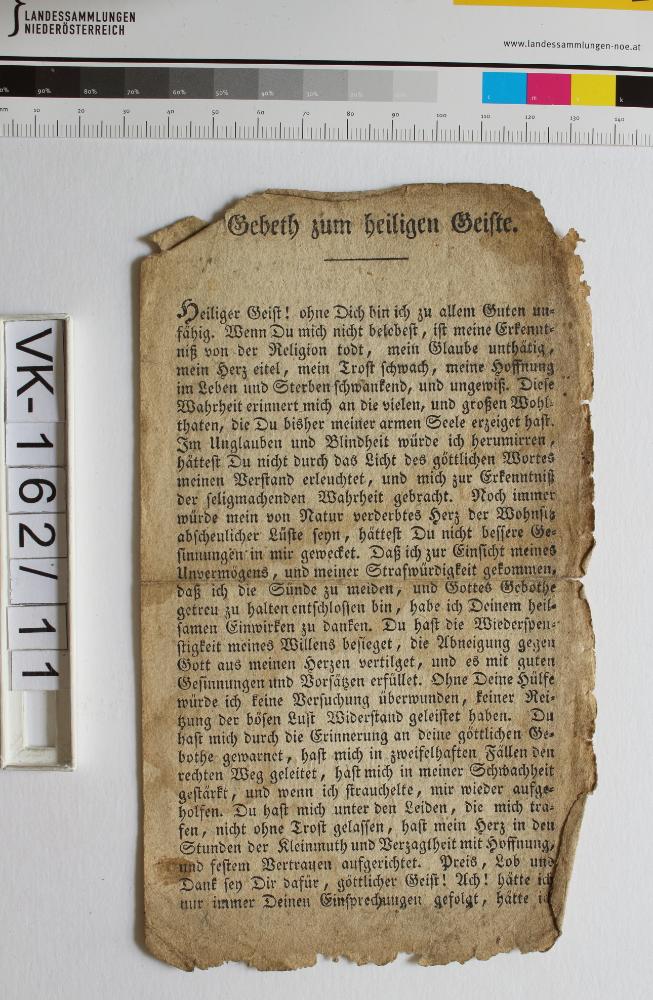 LANDESSAMMLUNGEN
NIEDERÖSTERREICH
www.landessammlungen-noe.at
90% 80% 70% 60% 50% 40% 30%
c m y k
mm 10 20 30 40 50 60 70 80 90 100 110 120 130 140
VK-162/11
Gebeth zum heiligen Geiste.
Heiliger Geist! ohne Dich bin ich zu allem Guten un-
fähig. Wenn Du mich nicht belebest, ist meine Erkennt-
niß von der Religion todt, mein Glaube unthätig,
mein Herz eitel, mein Trost schwach, meine Hoffnung
im Leben und Sterben schwankend, und ungewiß. Diese
Wahrheit erinnert mich an die vielen, und großen Wohl-
thaten, die Du bisher meiner armen Seele erzeiget hast.
Im Unglauben und Blindheit würde ich herumirren,
hättest Du nicht durch das Licht des göttlichen Wortes
meinen Verstand erleuchtet, und mich zur Erkenntniß
der seligmachenden Wahrheit gebracht. Noch immer
würde mein von Natur verderbtes Herz der Wohnsitz
abscheulicher Lüste seyn, hättest Du nicht bessere Ge-
sinnungen in mir gewecket. Daß ich zur Einsicht meines
Unvermögens, und meiner Strafwürdigkeit gekommen,
daß ich die Sünde zu meiden, und Gottes Gebothe
getreu zu halten entschlossen bin, habe ich Deinem heil-
samen Einwirken zu danken. Du hast die Wiederspen-
stigkeit meines Willens besieget, die Abneigung gegen
Gott aus meinen Herzen vertilget, und es mit guten
Gesinnungen und Vorsätzen erfüllet. Ohne Deine Hülfe
würde ich keine Versuchung überwunden, keiner Rei-
tzung der bösen Lust Widerstand geleistet haben. Du
hast mich durch die Erinnerung an deine göttlichen Ge-
bothe gewarnet, hast mich in zweifelhaften Fällen den
rechten Weg geleitet, hast mich in meiner Schwachheit
gestärkt, und wenn ich strauchelte, mir wieder aufge-
holfen. Du hast mich unter den Leiden, die mich tra-
fen, nicht ohne Trost gelassen, hast mein Herz in den
Stunden der Kleinmuth und Verzagtheit mit Hoffnung,
und festem Vertrauen aufgerichtet. Preis, Lob und
Dank sey Dir dafür, göttlicher Geist! Ach! hätte ich
nur immer Deinen Einsprechungen gefolgt, hätte ich